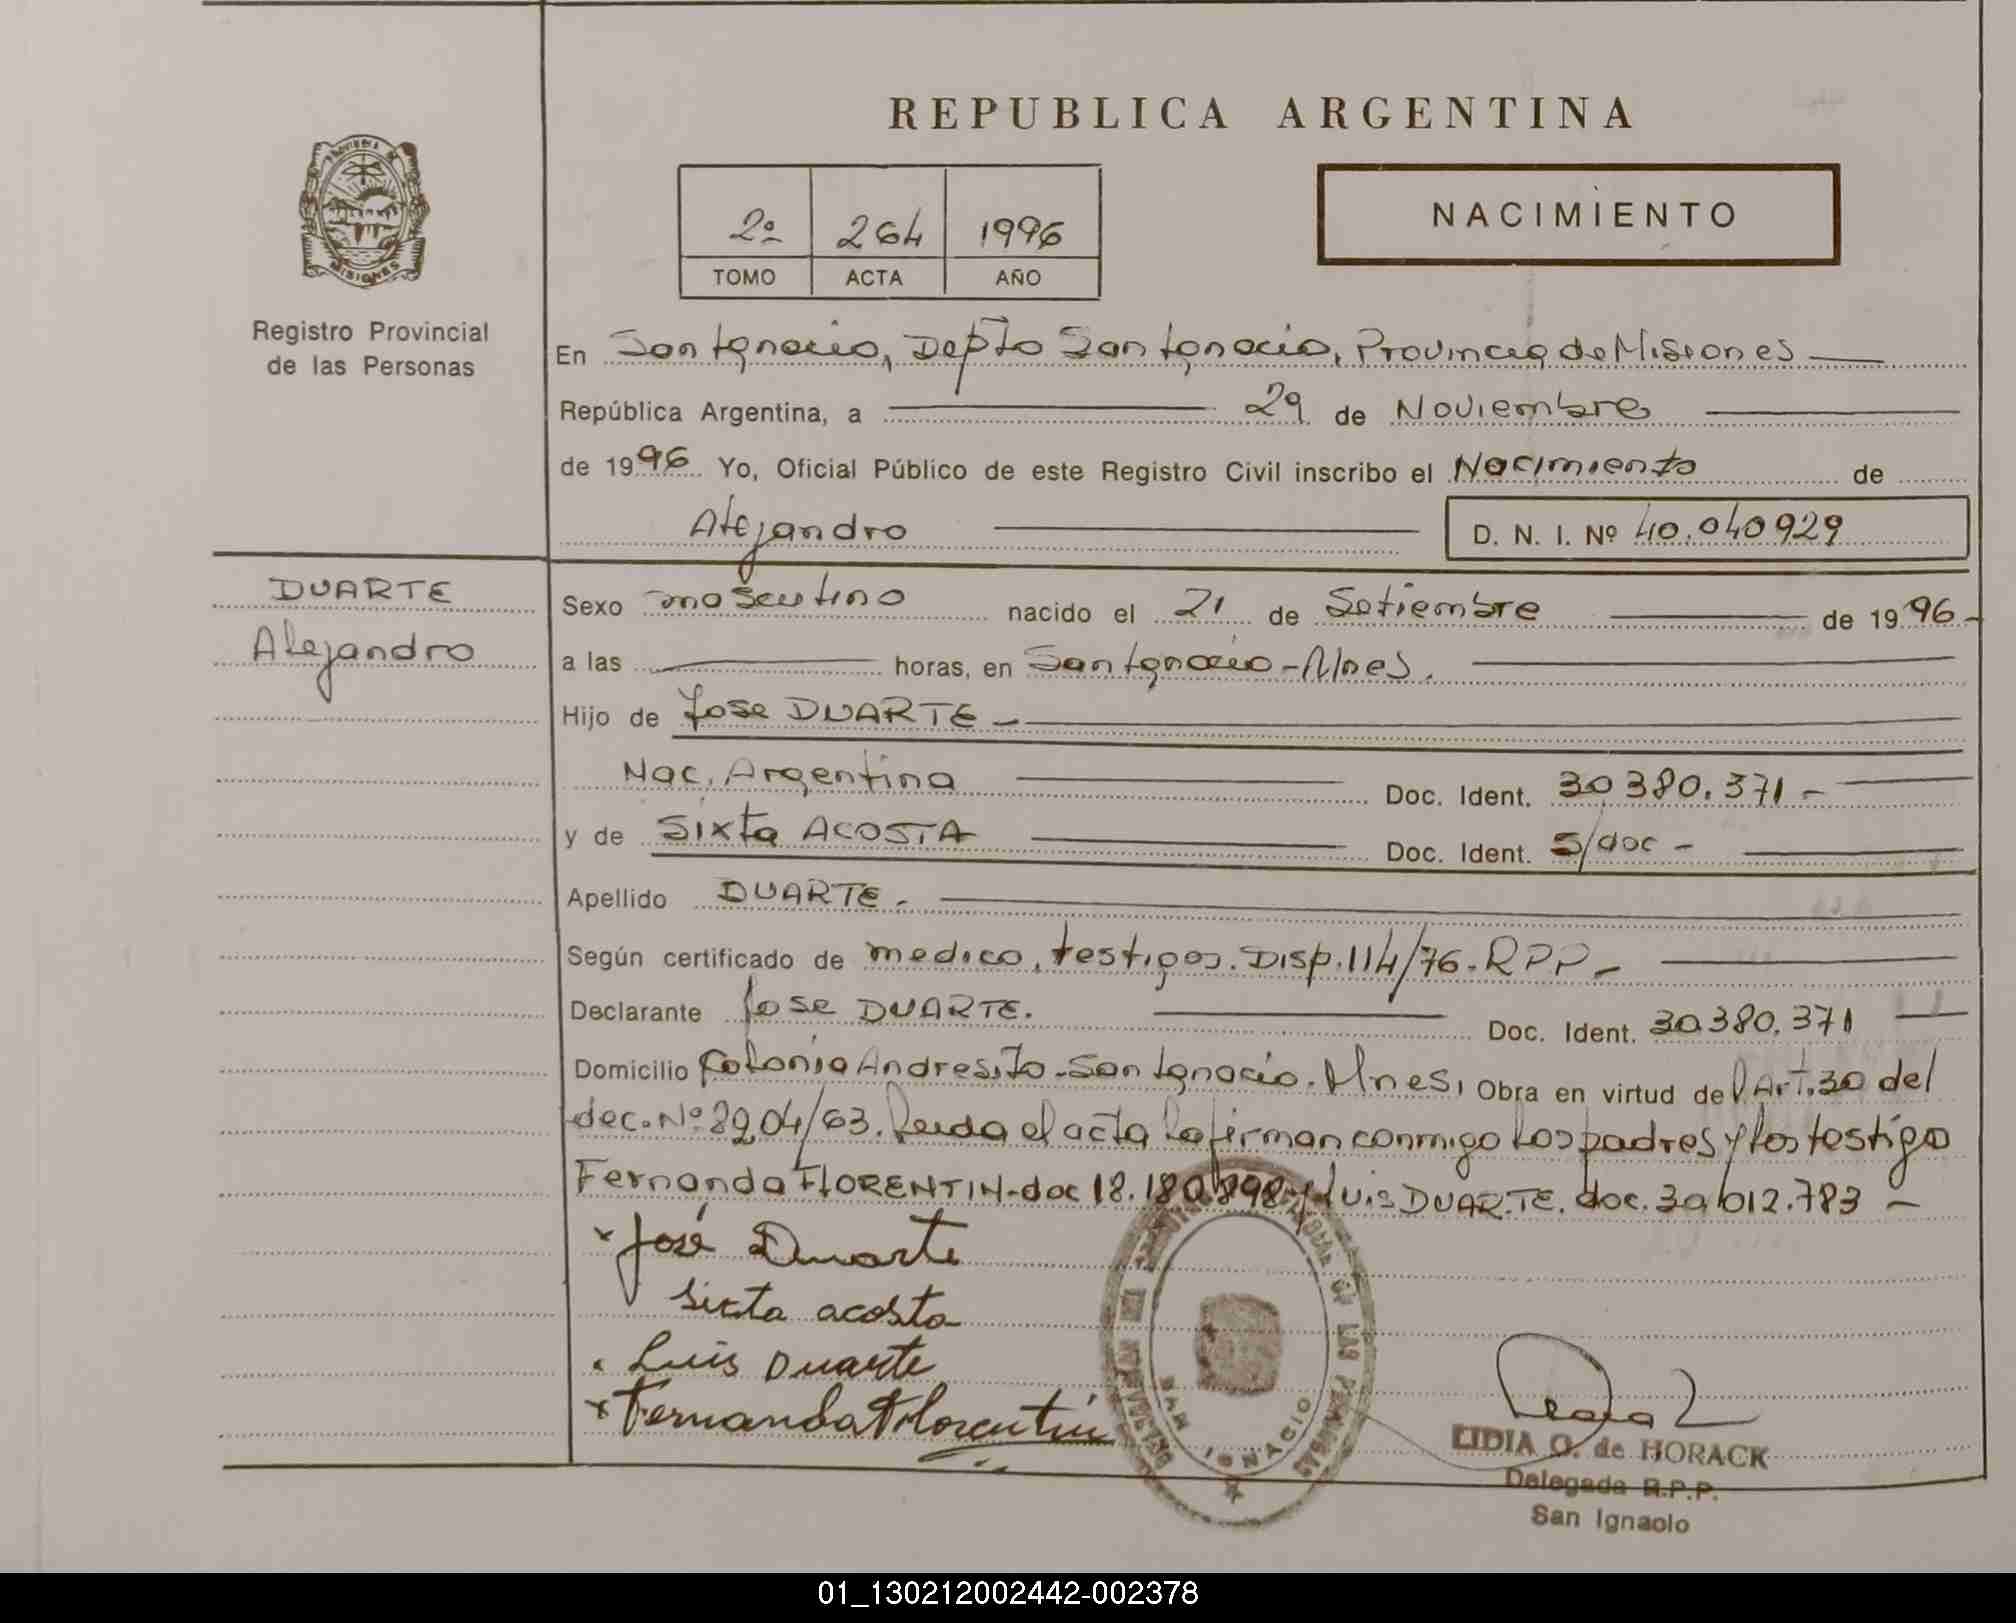 REPUBLICA ARGENTINA
PROVINCIA DE MISIONES
Registro Provincial
de las Personas
2º 264 1996
TOMO ACTA AÑO
NACIMIENTO
En San Ignacio, Depto San Ignacio, Provincia de Misiones
República Argentina, a 29 de Noviembre
de 1996 Yo, Oficial Público de este Registro Civil inscribo el Nacimiento de
Alejandro D. N. I. Nº 40.040929
DUARTE
Alejandro
Sexo masculino nacido el 21 de Setiembre de 1996-
a las horas, en San Ignacio-Mnes.
Hijo de Jose DUARTE-
Nac. Argentina Doc. Ident. 30380.371-
y de Sixta ACOSTA Doc. Ident. S/doc-
Apellido DUARTE.
Según certificado de medico, testigos. Disp.114/76-RPP-
Declarante Jose DUARTE. Doc. Ident. 30380.371
Domicilio Colonia Andresito-San Ignacio. Mnes, Obra en virtud del Art.30 del
dec.Nº8204/63. Leida el acta la firman conmigo los padres y los testigo
Fernanda FLORENTIN-doc 18.180.898 y Luis DUARTE. doc. 30.012.783-
x José Duarte
Sixta acosta
Luis Duarte
x Fernanda Florentin
SAN IGNACIO
LIDIA G. de HORACK
Delegada R.P.P.
San Ignacio
01_130212002442-002378